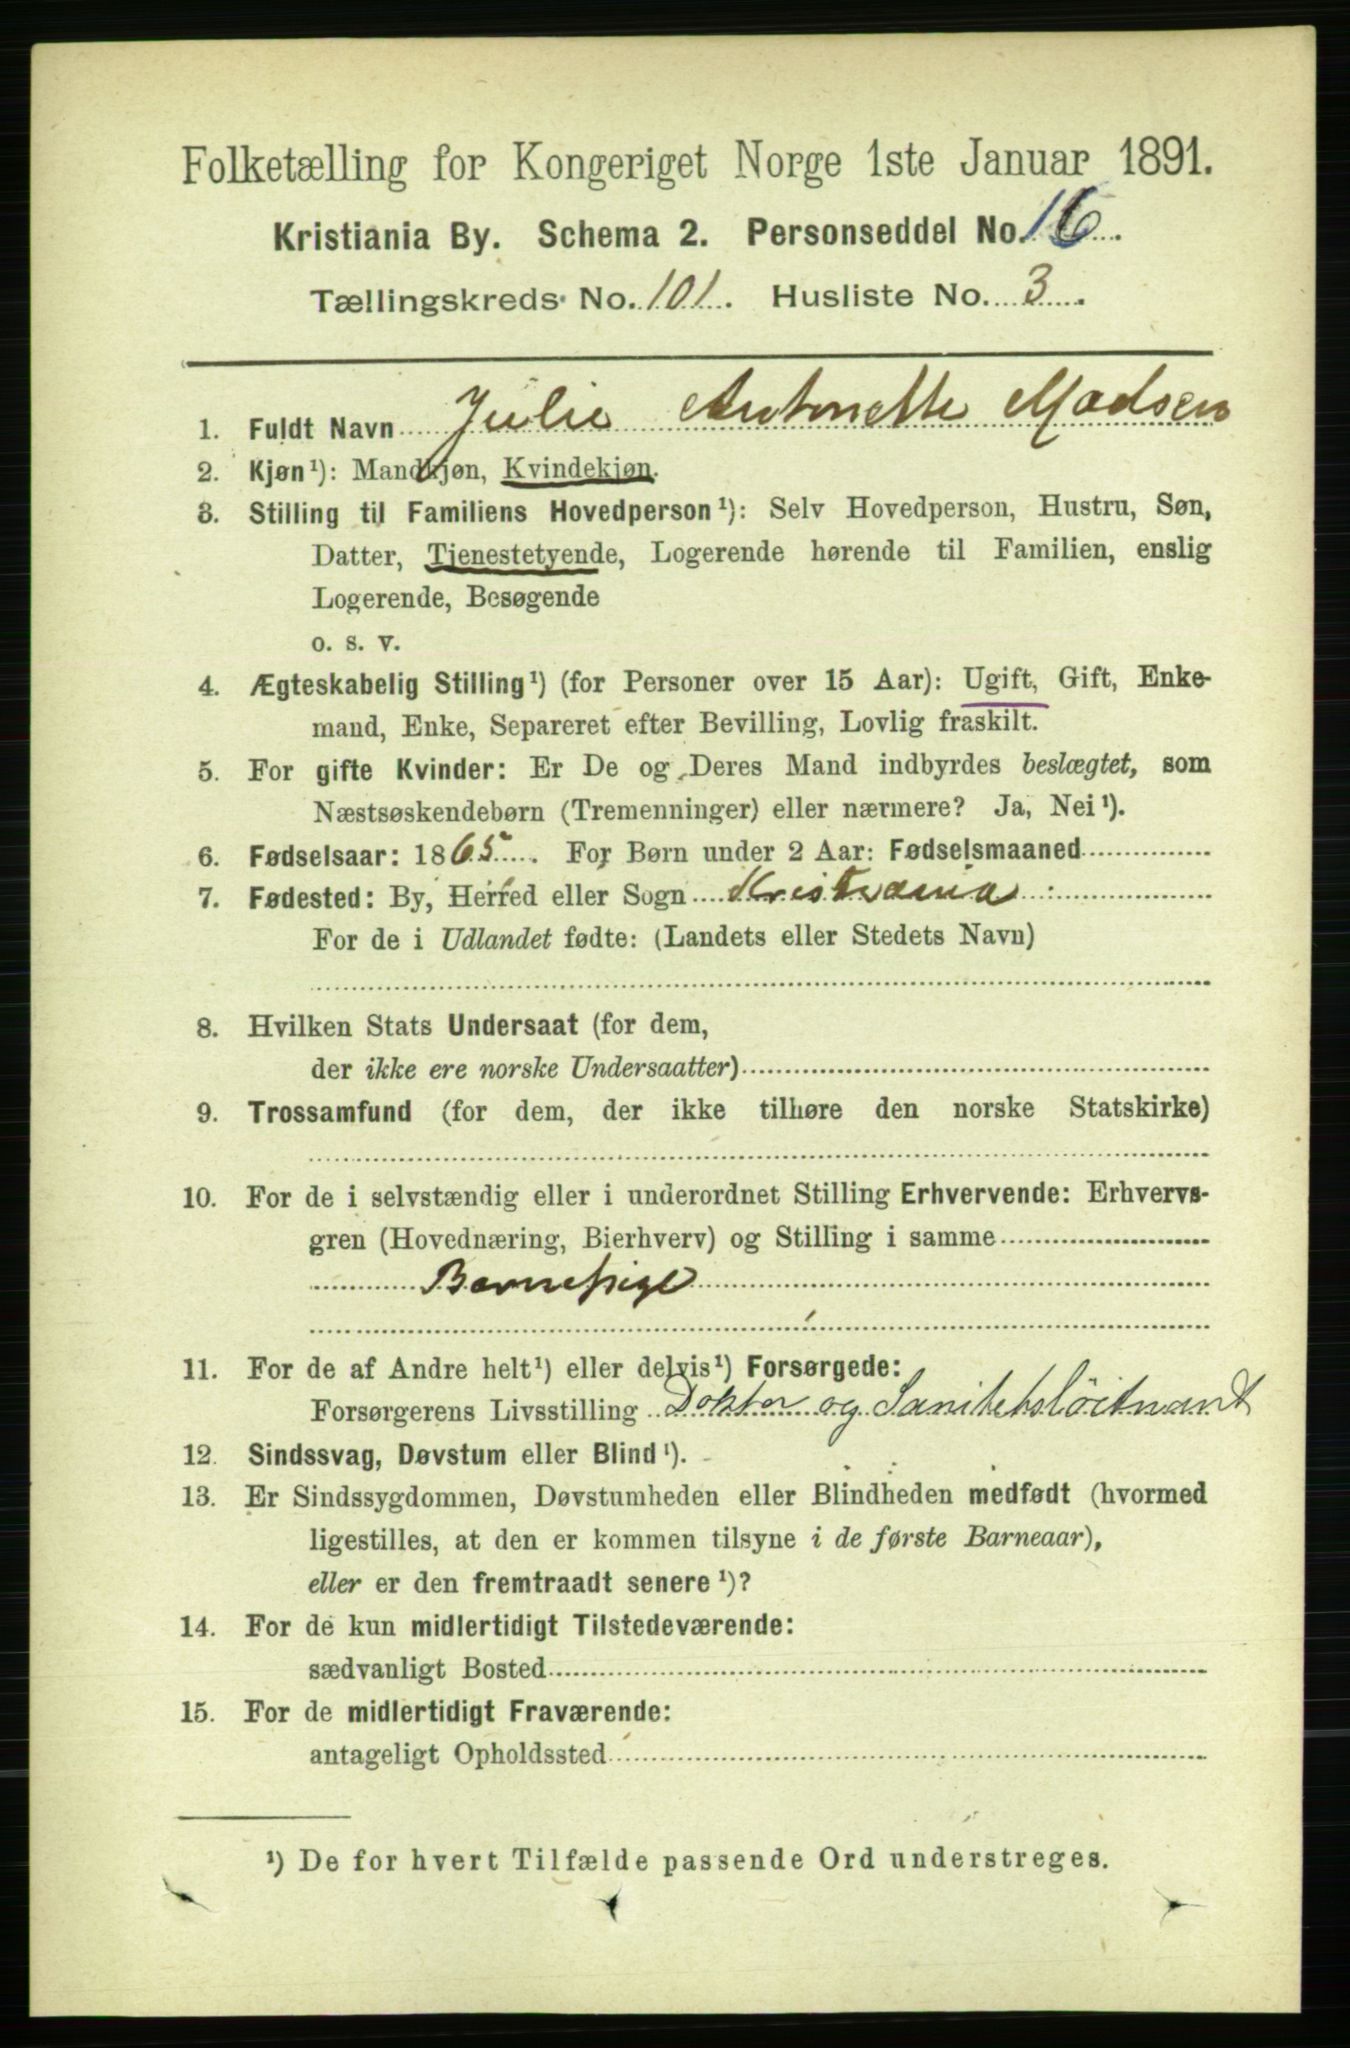 Folketælling for Kongeriget Norge 1ste Januar 1891.
Kristiania By. Schema 2. Personseddel No. 16.
Tællingskreds No. 101. Husliste No. 3.
1. Fuldt Navn Julie Antonette Madsen
2. Kjøn¹): Mandkjøn, Kvindekjøn.
3. Stilling til Familiens Hovedperson¹): Selv Hovedperson, Hustru, Søn,
Datter, Tjenestetyende, Logerende hørende til Familien, enslig
Logerende, Besøgende
o. s. v.
4. Ægteskabelig Stilling¹) (for Personer over 15 Aar): Ugift, Gift, Enke-
mand, Enke, Separeret efter Bevilling, Lovlig fraskilt.
5. For gifte Kvinder: Er De og Deres Mand indbyrdes beslægtet, som
Næstsøskendebørn (Tremenninger) eller nærmere? Ja, Nei¹).
6. Fødselsaar: 1865. For Børn under 2 Aar: Fødselsmaaned
7. Fødested: By, Herred eller Sogn Kristiania
For de i Udlandet fødte: (Landets eller Stedets Navn)
8. Hvilken Stats Undersaat (for dem,
der ikke ere norske Undersaatter)
9. Trossamfund (for dem, der ikke tilhøre den norske Statskirke)
10. For de i selvstændig eller i underordnet Stilling Erhvervende: Erhvervs-
gren (Hovednæring, Bierhverv) og Stilling i samme
Barnepige
11. For de af Andre helt¹) eller delvis¹) Forsørgede:
Forsørgerens Livsstilling Doktor og Sanitetsløitnant
12. Sindssvag, Døvstum eller Blind¹).
13. Er Sindssygdommen, Døvstumheden eller Blindheden medfødt (hvormed
ligestilles, at den er kommen tilsyne i de første Barneaar),
eller er den fremtraadt senere¹)?
14. For de kun midlertidigt Tilstedeværende:
sædvanligt Bosted
15. For de midlertidigt Fraværende:
antageligt Opholdssted
¹) De for hvert Tilfælde passende Ord understreges.